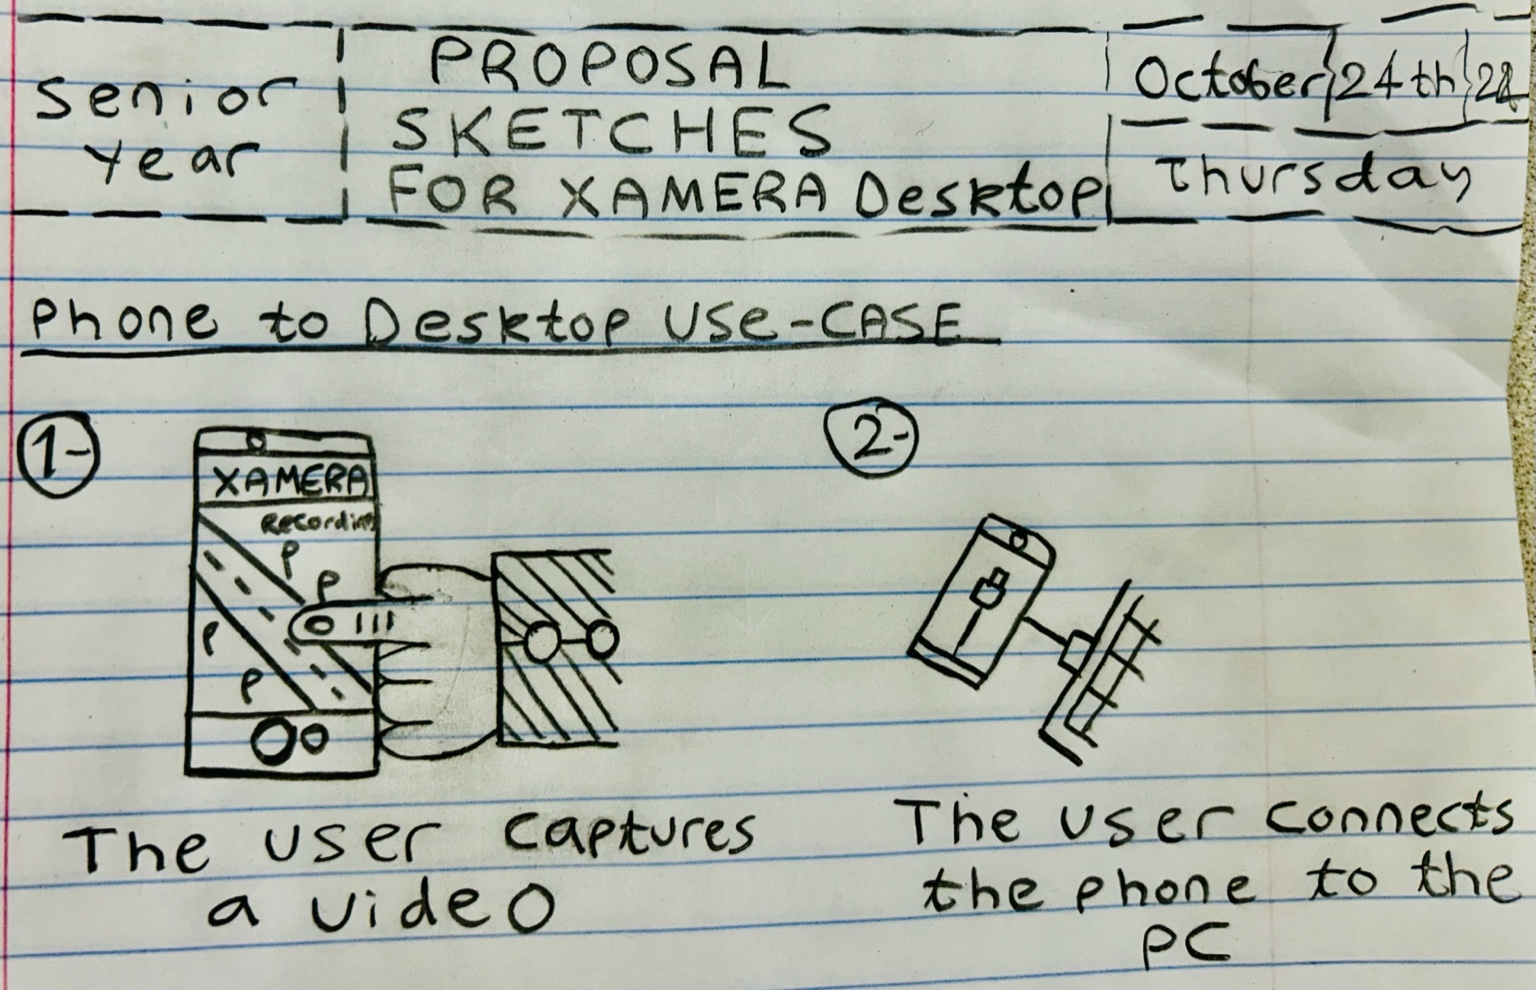 Senior
Year
PROPOSAL
SKETCHES
FOR XAMERA Desktop
October 24th
Thursday
Phone to Desktop USe-CASE
1-
XAMERA
Recording
P
P
P
P
The user captures
a video
2-
The user connects
the phone to the
PC